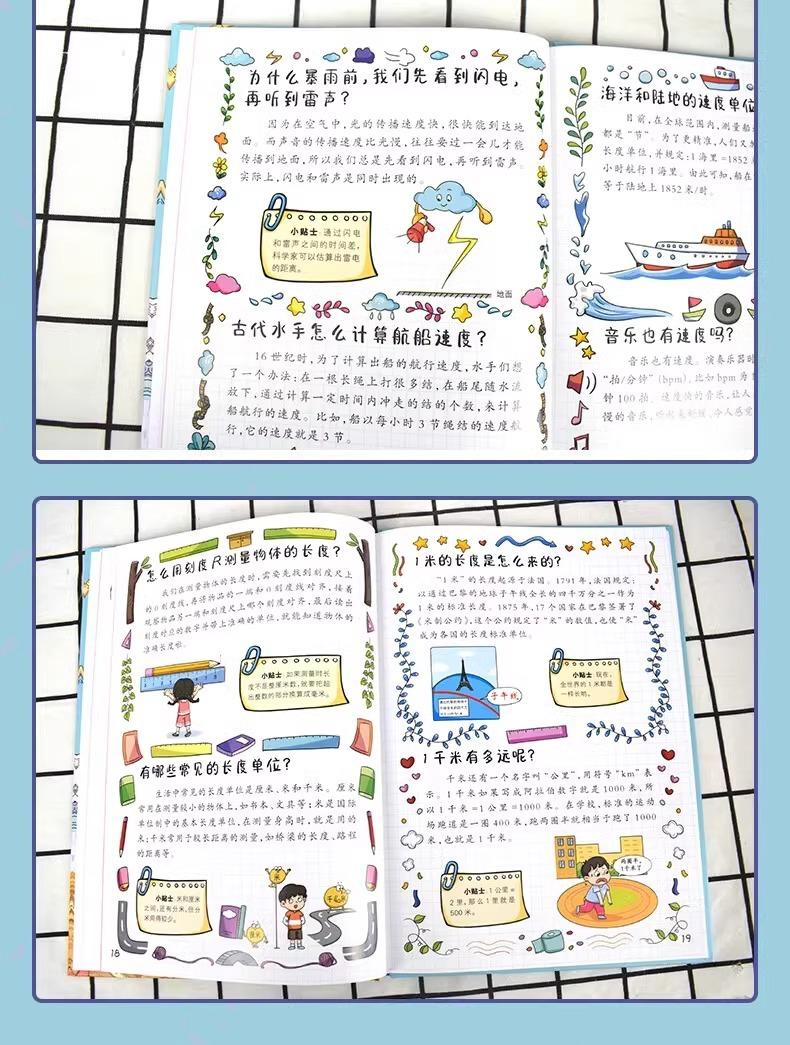 为什么暴雨前,我们先看到闪电,
再听到雷声?
因为在空气中,光的传播速度快,很快能到达地
面。而声音的传播速度比光慢,往往要过一会儿才能
传播到地面,所以我们总是先看到闪电,再听到雷声。
实际上,闪电和雷声是同时出现的。
小贴士 通过闪电
和雷声之间的时间差,
科学家可以估算出雷电
的距离。
地面
古代水手怎么计算航船速度?
16世纪时,为了计算出船的航行速度,水手们想
了一个办法:在一根长绳上打很多结,在船尾随水流
放下,通过计算一定时间内冲走的结的个数,来计算
船航行的速度。比如,船以每小时3节绳结的速度航
行,它的速度就是3节。
海洋和陆地的速度单位
目前,在全球范围内,测量船
都是“节”。为了更精准,人们又
长度单位,并规定:1海里=1852
小时航行1海里。由此可知,船在
等于陆地上1852米/时。
音乐也有速度吗?
音乐也有速度。演奏乐器时
“拍/分钟”(bpm),比如bpm为1
钟100拍。速度快的音乐,让人
慢的音乐,听起来舒缓,令人感觉
怎么用刻度尺测量物体的长度?
我们在测量物体的长度时,需要先找到刻度尺上
的0刻度线,再将物品的一端和0刻度线对齐,接着
观察物品另一端和刻度尺上哪个刻度对齐,最后读出
刻度对应的数字并带上准确的单位,就能知道物体的
准确长度啦。
小贴士 如果测量时长
度不是整厘米数,就要把超
出整数的部分换算成毫米。
有哪些常见的长度单位?
生活中常见的长度单位是厘米、米和千米。厘米
常用在测量较小的物体上,如书本、文具等;米是国际
单位制中的基本长度单位,在测量身高时,就是用的
米;千米常用于较长距离的测量,如桥梁的长度、路程
的距离等。
小贴士 米和厘米
之间,还有分米,但分
米用得较少。
厘米
米
千米
18
1米的长度是怎么来的?
“1米”的长度起源于法国。1791年,法国规定:
以通过巴黎的地球子午线全长的四千万分之一作为
1米的标准长度。1875年,17个国家在巴黎签署了
《米制公约》,这个公约规定了“米”的数值,也使“米”
成为各国的长度标准单位。
子午线
小贴士 现在,
全世界的1米都是
一样长哟。
1千米有多远呢?
千米还有一个名字叫“公里”,用符号“km”表
示。1千米如果写成阿拉伯数字就是1000米,所
以1千米=1公里=1000米。在学校,标准的运动
场跑道是一圈400米,跑两圈半就相当于跑了1000
米,也就是1千米。
小贴士 1公里=
2里,那么1里就是
500米。
两圈半,
1千米了
19